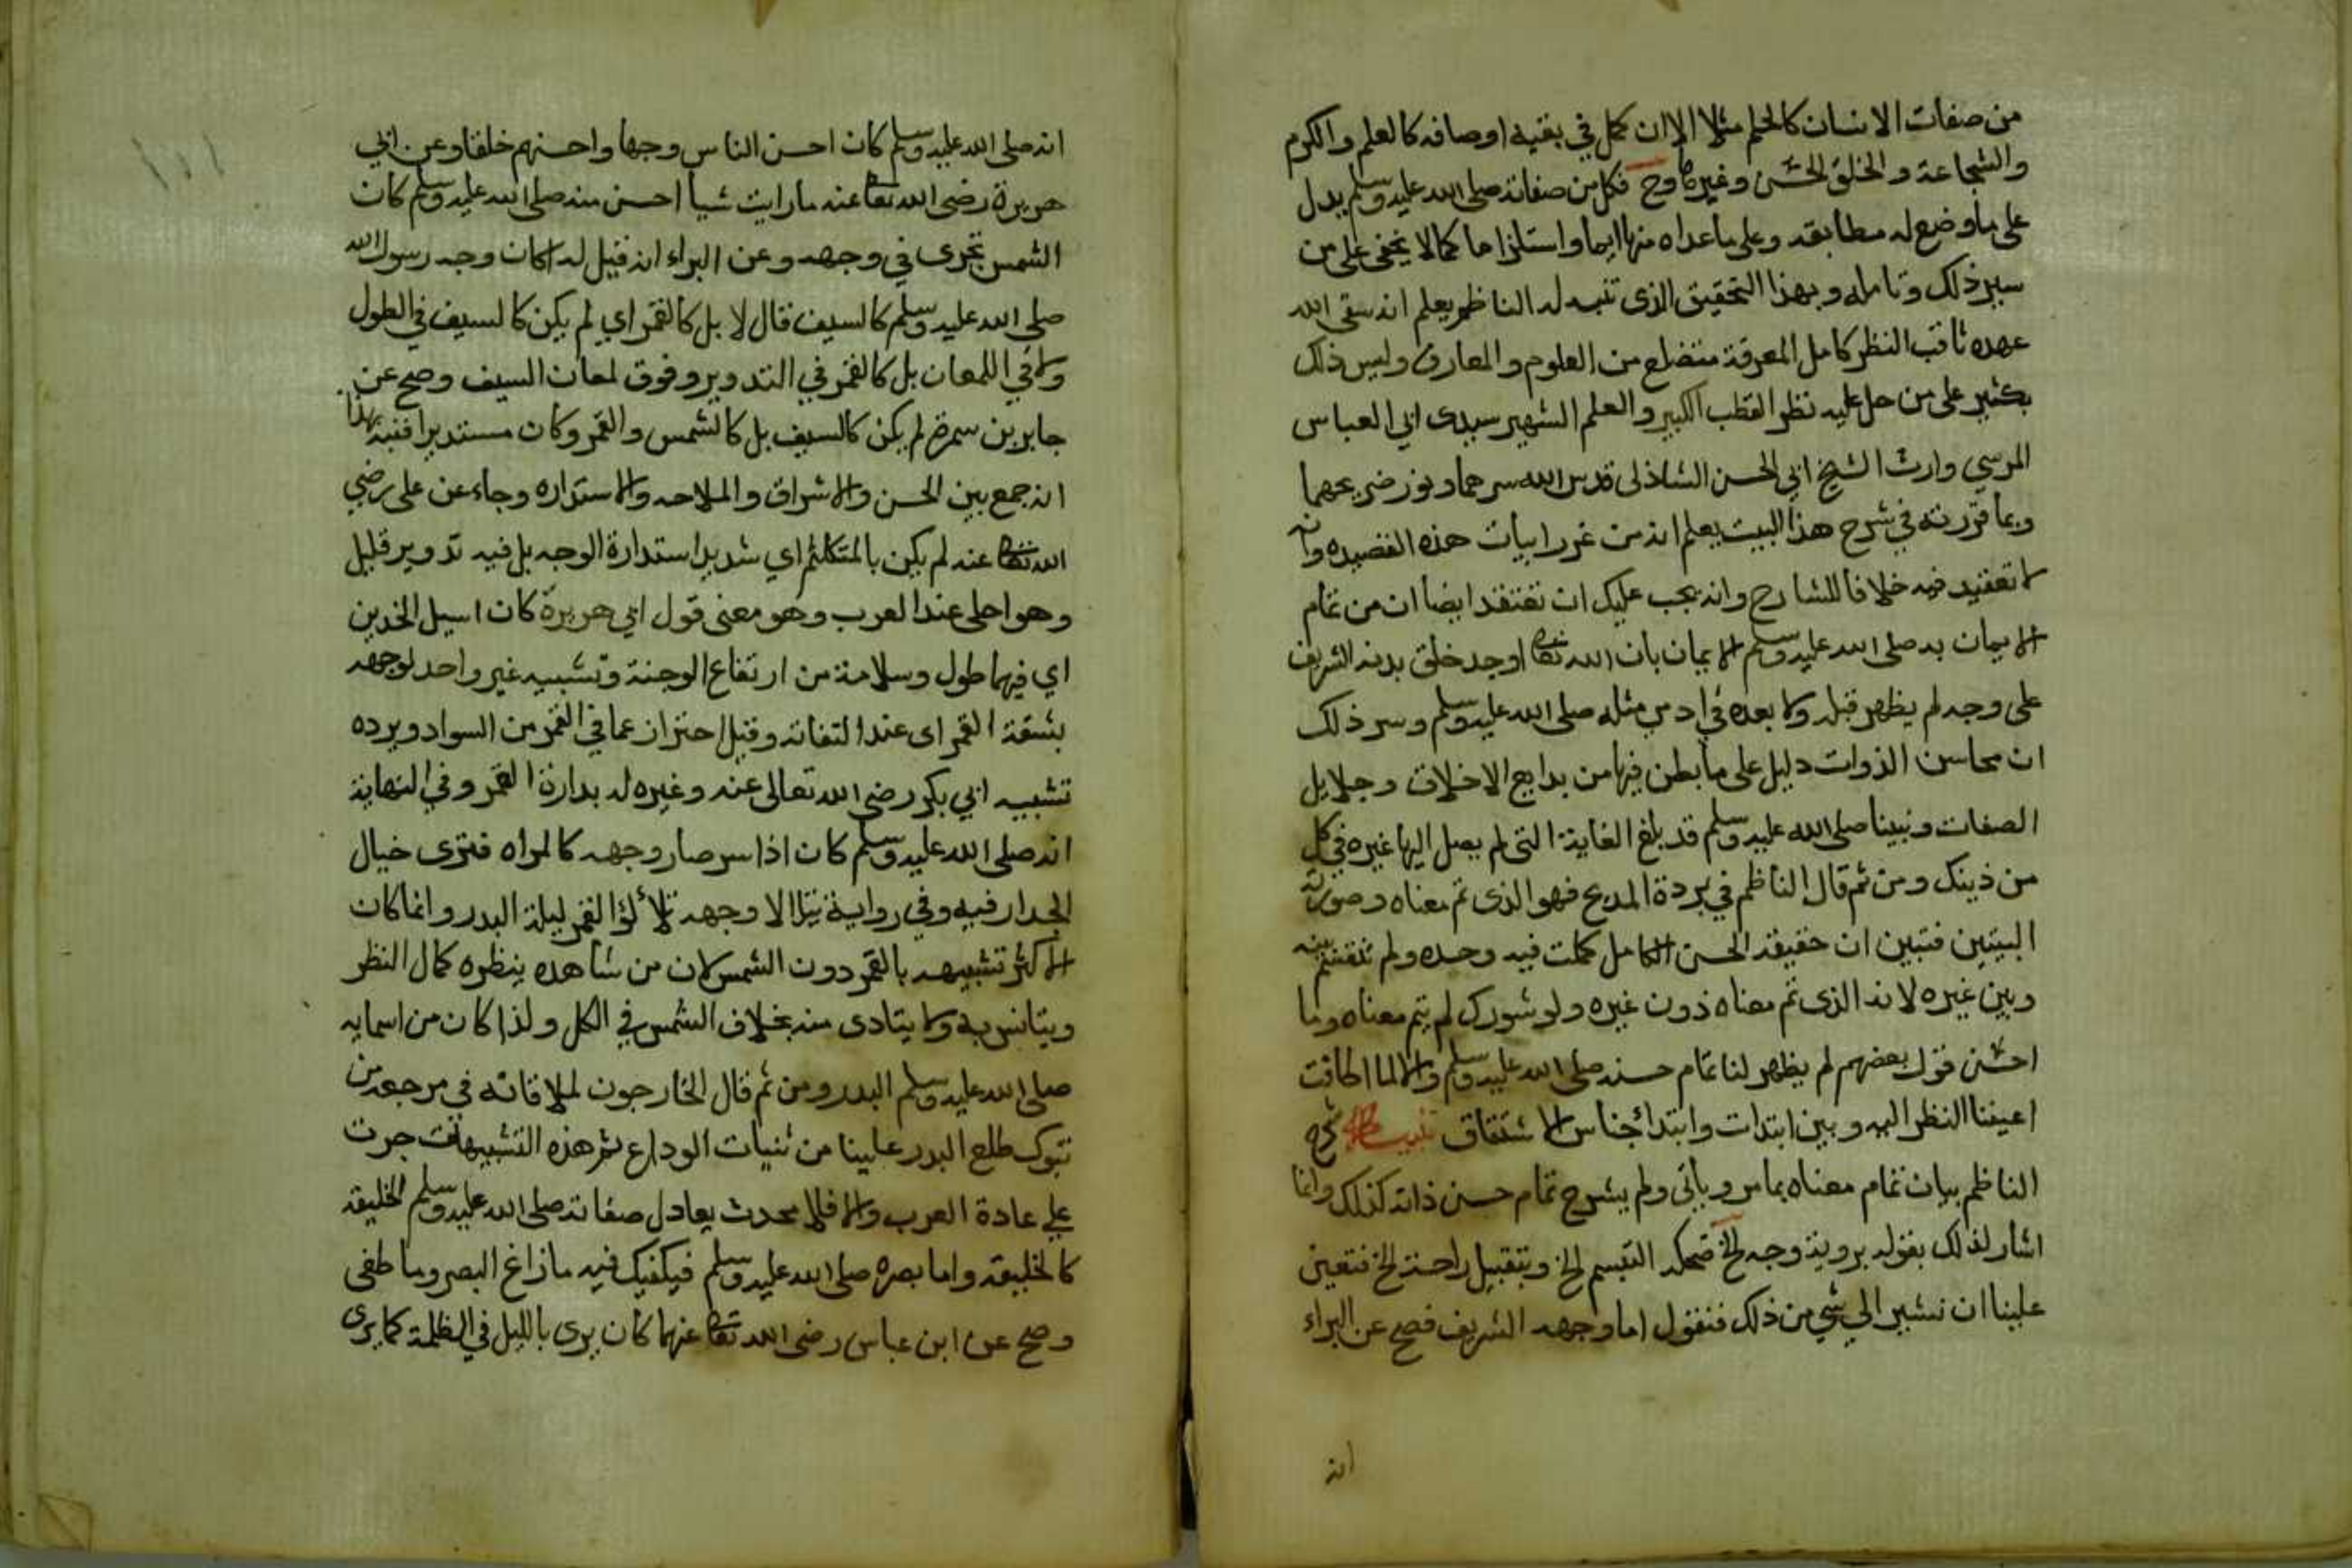 من صفات الانسان كالحلم مثلا الا ان كمل في بقية اوصافه كالعلم والكرم
والشجاعة والخلق الحسن وغيرها وح فكل من صفاته صلى الله عليه وسلم يدل
على ما وضع له مطابقه وعلى ما عداه منها ايما واستلزاما كما لا يخفى على من
سبر ذلك وتامله وبهذا التحقيق الذى تنبه له الناظم يعلم انه سقى الله
عهده ثاقب النظر كامل المعرفة متضلع من العلوم والمعارف وليس ذلك
بكثير على من حل عليه نظر القطب الكبير والعلم الشهير سيدى ابى العباس
المرسي وارث الشيخ ابي الحسن الشاذلى قدس الله سرهما ونور ضريحهما
وبما قررته في شرح هذا البيت يعلم انه من غرر ابيات هذه القصيده وانه
لا تعقيد فيه خلافا للشارح وانه يجب عليك ان تعتقد ايضا ان من تمام
الايمان به صلى الله عليه وسلم الايمان بان الله تعا اوجد خلق بدنه الشريف
على وجه لم يظهر قبله ولا بعده في ادمى مثله صلى الله عليه وسلم وسر ذلك
ان محاسن الذوات دليل على ما بطن فيها من بدايع الاخلاق وجلايل
الصفات ونبينا صلى الله عليه وسلم قد بلغ الغاية التى لم يصل اليها غيره في كل
من ذينك ومن ثم قال الناظم في بردة المديح فهو الذى تم معناه وصورته
البيتين فتبين ان حقيقة الحسن الكامل كملت فيه وحده ولم تنقسم بينه
وبين غيره لانه الذى تم معناه دون غيره ولو شورك لم يتم معناه وما
احسن قول بعضهم لم يظهر لنا تمام حسنه صلى الله عليه وسلم والا لما اطاقت
اعيننا النظر اليه وبين ابتدات وابتدا جناس الاشتقاق تنبيه شرح
الناظم بيان تمام معناه بما مر وياتى ولم يشرح تمام حسن ذاته كذلك وانما
اشار لذلك بقوله بروية وجه الخ ضحكه التبسم الخ وبتقبيل راحته الخ فتعين
علينا ان نشير الى شي من ذلك فنقول اما وجهه الشريف فصح عن البراء
انه
انه صلى الله عليه وسلم كان احسن الناس وجها واحسنهم خلقا وعن ابي
هريرة رضى الله تعا عنه ما رايت شيا احسن منه صلى الله عليه وسلم كان
الشمس تجرى في وجهه وعن البراء انه قيل له اكان وجه رسول الله
صلى الله عليه وسلم كالسيف قال لا بل كالقمر اي لم يكن كالسيف في الطول
ولا في اللمعان بل كالقمر في التدوير وفوق لمعان السيف وصح عن
جابر بن سمرة لم يكن كالسيف بل كالشمس والقمر وكان مستديرا فنبه بهذا
انه جمع بين الحسن والاشراق والملاحه والاستداره وجاء عن على رضي
الله تعا عنه لم يكن بالمتكلثم اي شديد استدارة الوجه بل فيه تدوير قليل
وهو احلى عند العرب وهو معنى قول ابي هريرة كان اسيل الخدين
اي فيهما طول وسلامة من ارتفاع الوجنة وتشبيه غير واحد لوجهه
بشقة القمر اى عند التفاته وقيل احتراز عما في القمر من السواد ويرده
تشبيه ابي بكر رضى الله تعالى عنه وغيره له بدارة القمر وفي النهاية
انه صلى الله عليه وسلم كان اذا سر صار وجهه كالمراه فترى خيال
الجدار فيه وفي رواية يتلالا وجهه تلألؤ القمر ليلة البدر وانما كان
الاكثر تشبيهه بالقمر دون الشمس لان من شاهده ينظره كمال النظر
ويتانس به ولا يتاذى منه بخلاف الشمس في الكل ولذا كان من اسمايه
صلى الله عليه وسلم البدر ومن ثم قال الخارجون لملاقاته في مرجعه من
تبوك طلع البدر علينا من ثنيات الوداع ثم هذه التشبيهات جرت
على عادة العرب والا فلا محدث يعادل صفاته صلى الله عليه وسلم الخليقه
كالخليقه واما بصره صلى الله عليه وسلم فيكفيك فيه ما زاغ البصر وما طغى
وصح عن ابن عباس رضى الله تعا عنهما كان يرى بالليل في الظلمة كما يرى